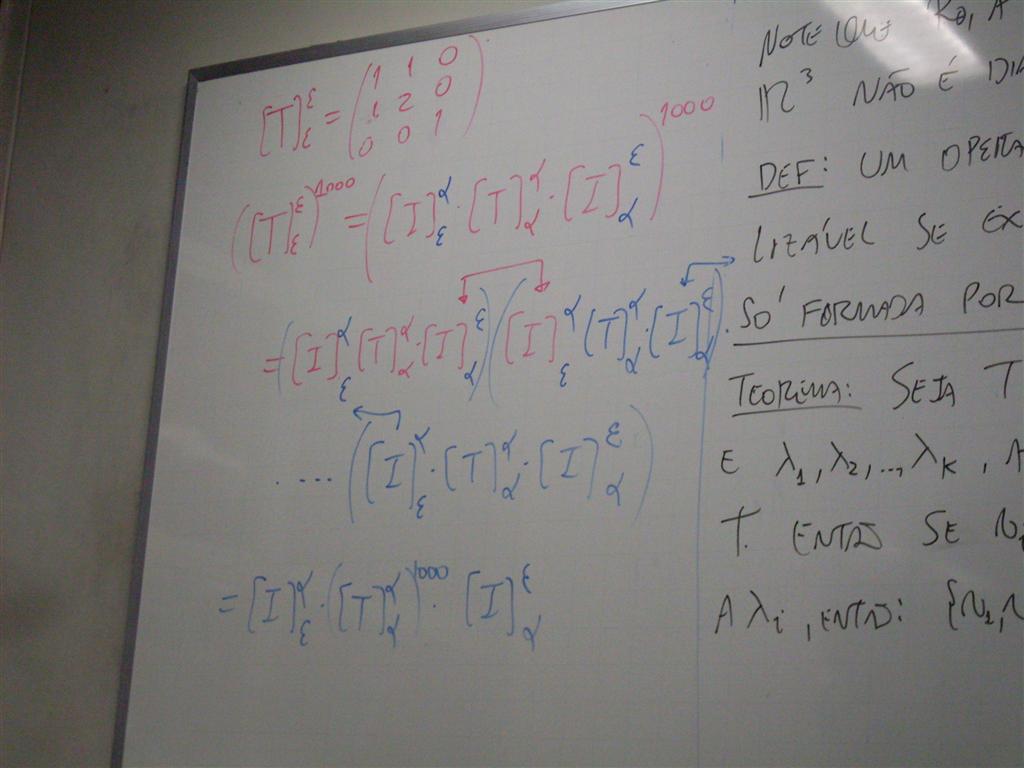 [T]^ε_ε = (1 1 0
1 2 0
0 0 1)
([T]^ε_ε)^1000 = ([I]^α_ε · [T]^α_α · [I]^ε_α)^1000
= ([I]^α_ε [T]^α_α · [I]^ε_α)([I]^α_ε [T]^α_α · [I]^ε_α) ·
· ... ([I]^α_ε · [T]^α_α · [I]^ε_α)
= [I]^α_ε · ([T]^α_α)^1000 · [I]^ε_α
NOTE QUE Rθ, A
ℝ³ NÃO É DIA
DEF: UM OPERA
LIZÁVEL SE EX
SÓ FORMADA POR
TEOREMA: SEJA T
E λ1, λ2, .., λK, A
T. ENTÃO SE
A λi, ENTÃO: